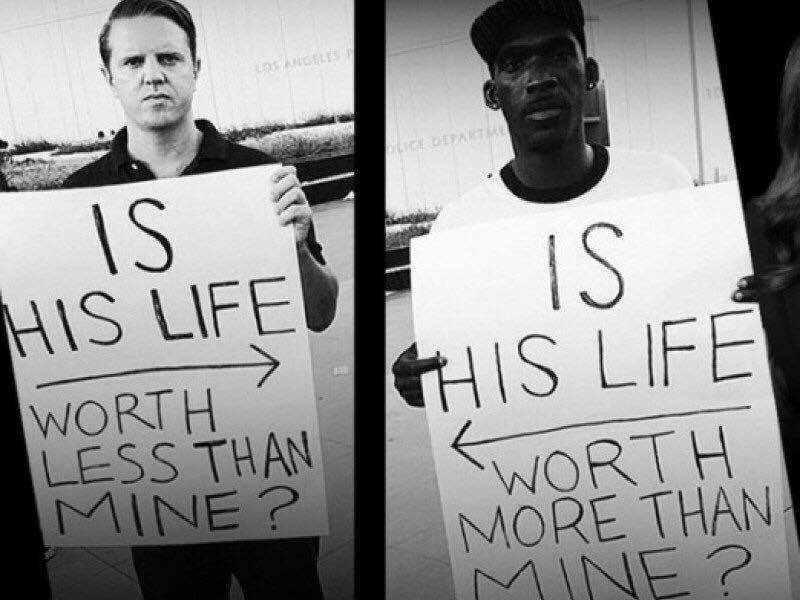 LOS ANGELES P
IS
HIS LIFE
WORTH
LESS THAN
MINE?
OLICE DEPARTME
IS
HIS LIFE
WORTH
MORE THAN
MINE?